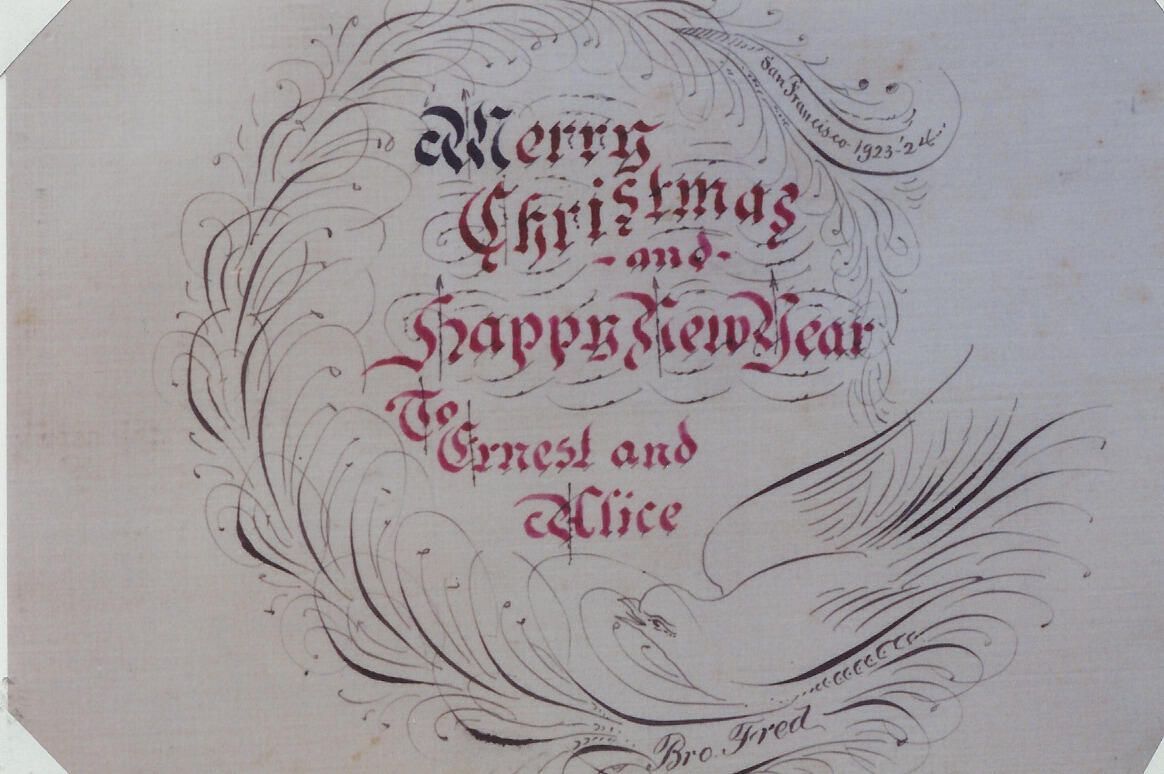 San Francisco 1923-'24.
Merry
Christmas
-and-
Happy New Year
To
Ernest and
Alice
Bro. Fred